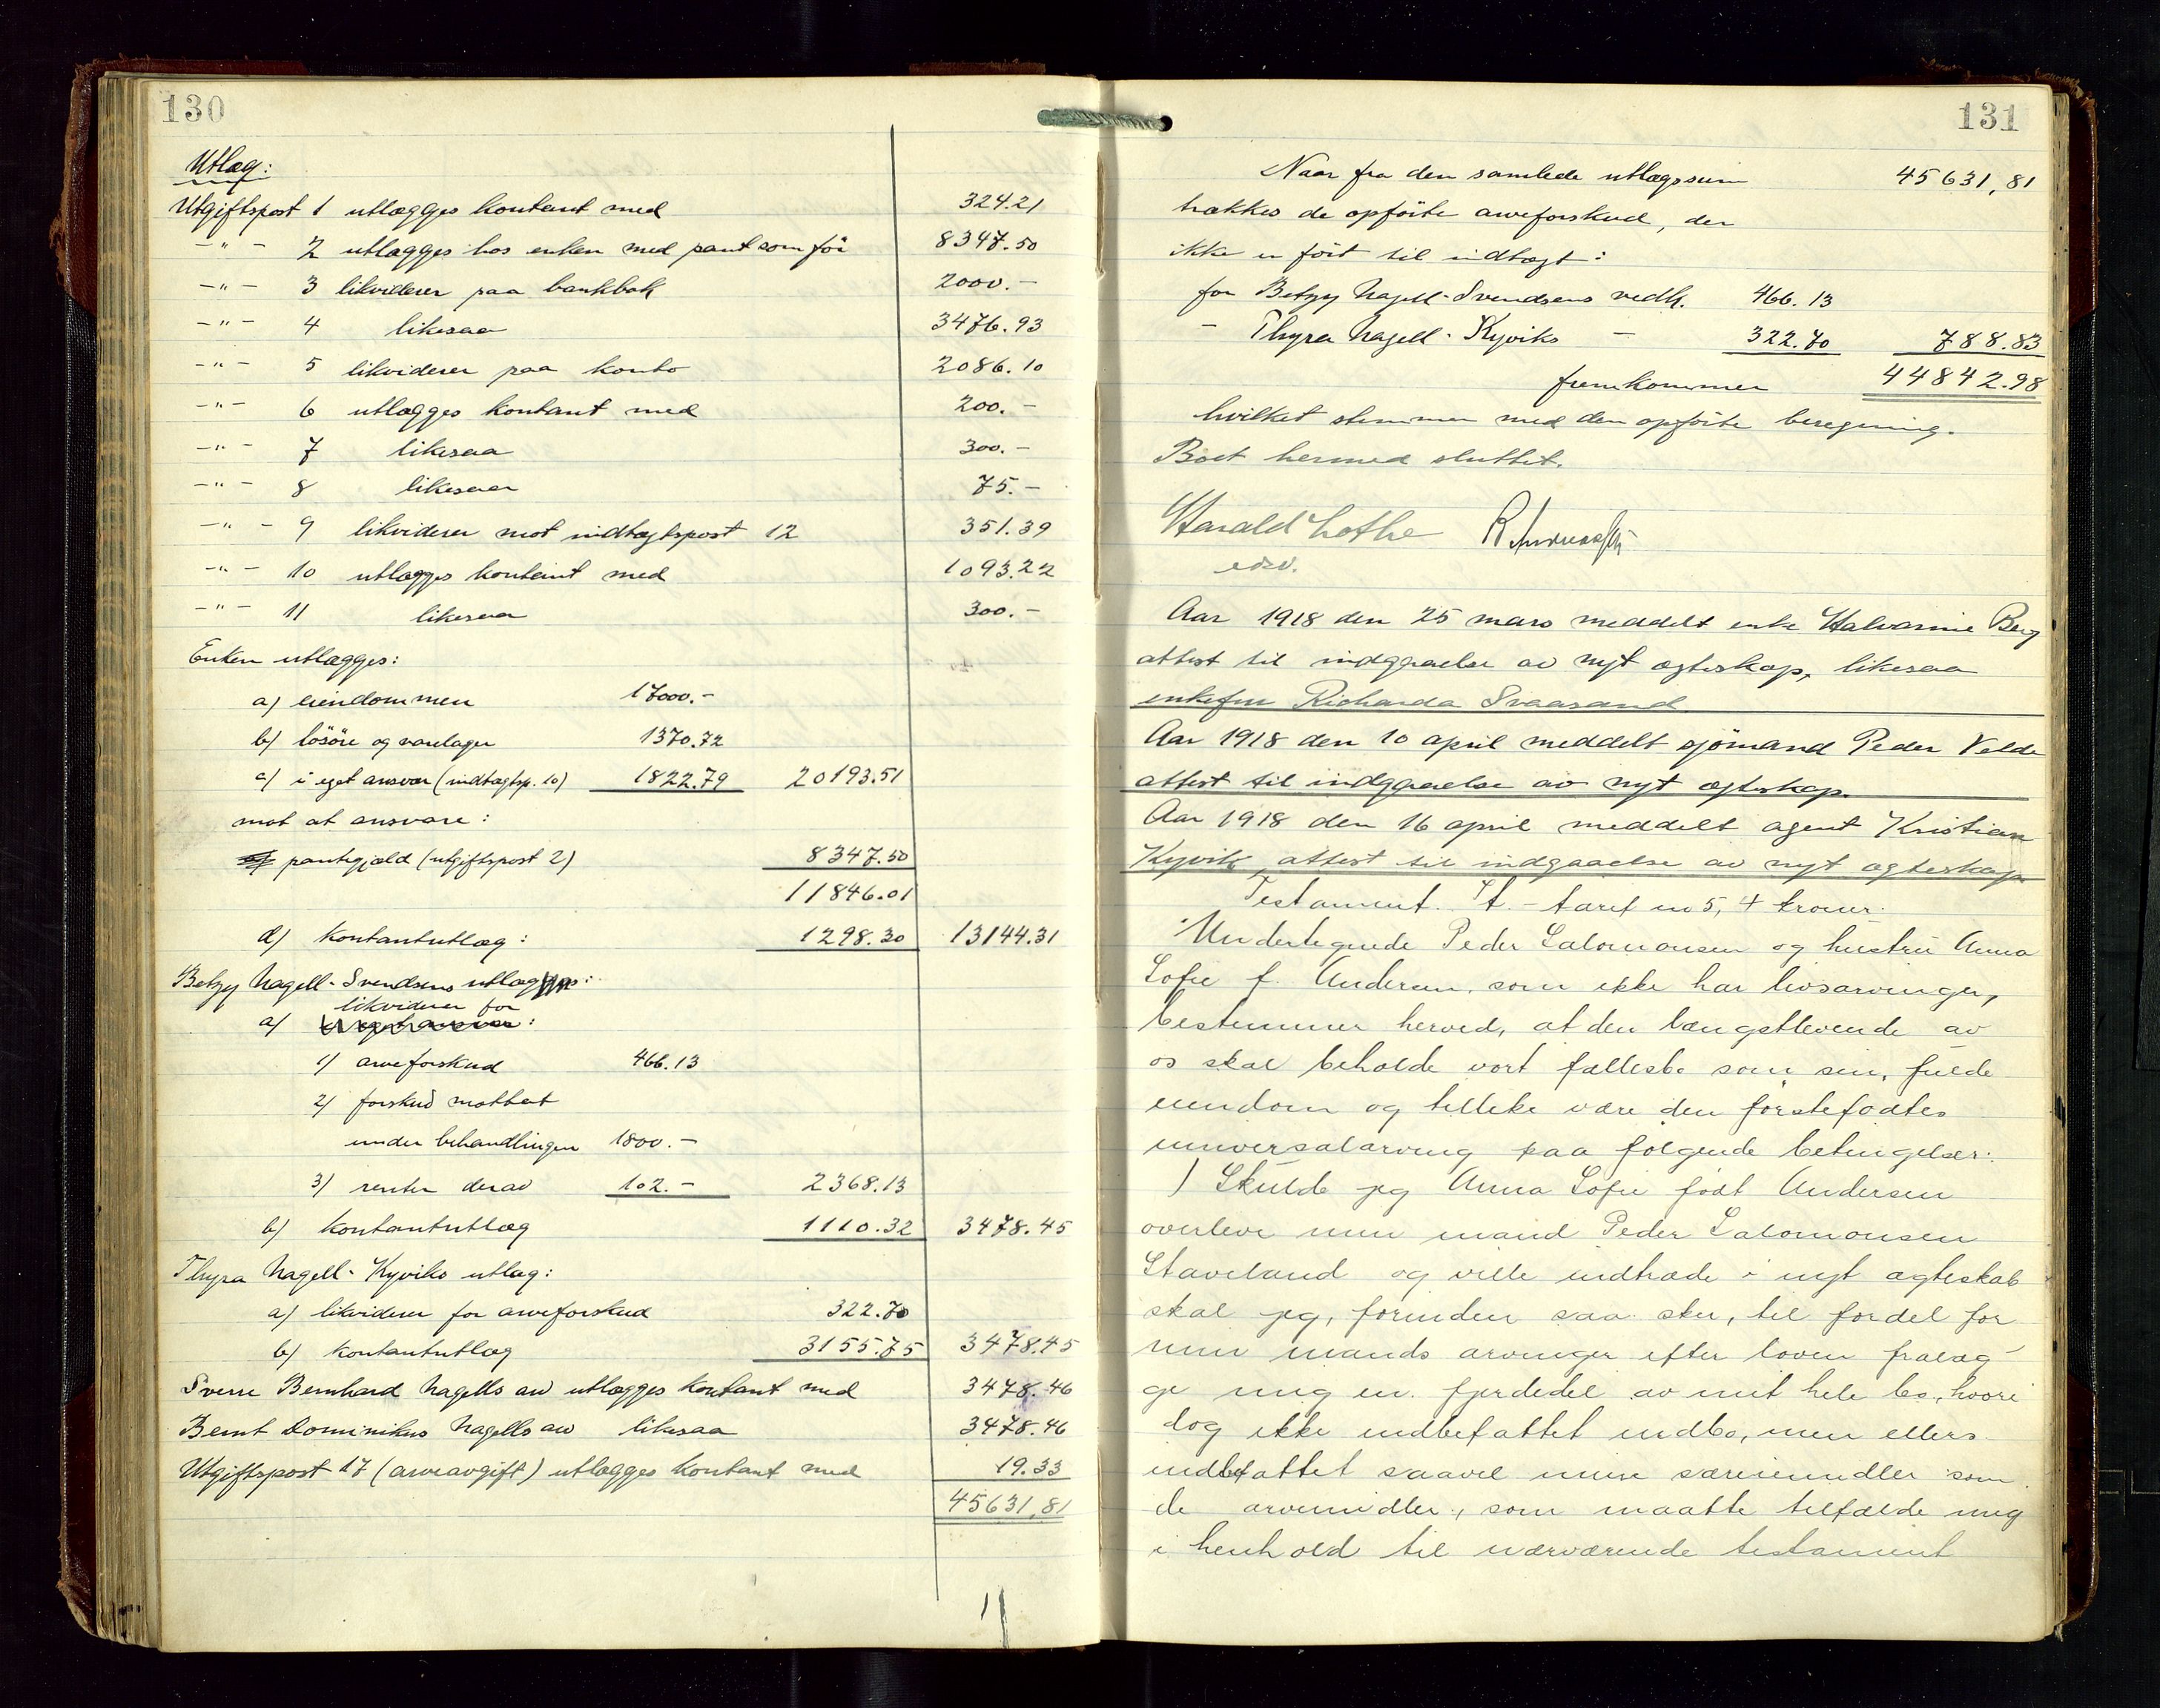 130
Utlæg:
Utgiftspost 1 utlægges kontant med 324.21
-"- 2 utlægges hos enken med pant som før 8347.50
-"- 3 likviderer paa bankbok 2000.-
-"- 4 likesaa 3476.93
-"- 5 likviderer paa konto 2086.10
-"- 6 utlægges kontant med 200.-
-"- 7 likesaa 300.-
-"- 8 likesaa 75.-
-"- 9 likviderer mot indtægtspost 12 351.39
-"- 10 utlægges kontant med 1093.22
-"- 11 likesaa 300.-
Enken utlægges:
a) eiendommen 17000.-
b) løsøre og varelager 1370.72
c) i eget ansvar (indtægtsp. 10) 1822.79 20193.51
mot at ansvare:
pantegjæld (utgiftspost 2) 8347.50
11846.01
d) kontantutlæg: 1298.30 13144.31
Betzy Nagell-Svendsens utlæg:
likviderer for
a) :
1) arveforskud 466.13
2) forskud mottat
under behandlingen 1800.-
3) renter derav 102.- 2368.13
b) kontantutlæg 1110.32 3478.45
Thyra Nagell-Kyviks utlæg:
a) likviderer for arveforskud 322.70
b) kontantutlæg 3155.75 3478.45
Sverre Bernhard Nagells arv utlægges kontant med 3478.46
Bernt Dominikus Nagells arv likesaa 3478.46
Utgiftspost 17 (arveavgift) utlægges kontant med 19.33
45631,81
131
Naar fra den samlede utlægssum 45631,81
trækkes de opførte arveforskud, der
ikke er ført til indtægt:
for Betzy Nagell-Svendsens vedk. 466.13
- Thyra Nagell-Kyviks - 322.70 788.83
fremkommer 44842.98
hvilket stemmer med den opførte beregning.
Boet hermed sluttet.
Harald Lothe
edsv.
Aar 1918 den 25 mars meddelt enke Halvarine Berg
attest til indgaaelse av nyt ægteskap, likesaa
enkefru Richarda Svaasand
Aar 1918 den 10 april meddelt sjømand Peder Velde
attest til indgaaelse av nyt ægteskap.
Aar 1918 den 16 april meddelt agent Kristian
Kyvik attest til indgaaelse av nyt ægteskap
Testament. St.-taxt no 5, 4 kroner.
Undertegnede Peder Salomonsen og hustru Anna
Sofie f. Andersen, som ikke har livsarvinger,
bestemmer herved, at den længstlevende av
os skal beholde vort fællesbo som sin fulde
eiendom og tillike være den førstefødtes
universalarving paa følgende betingelser:
) Skulde jeg Anna Sofie født Andersen
overleve min mand Peder Salomonsen
Staveland og ville indtræde i nyt ægteskab
skal jeg, forinden saa sker, til fordel for
min mands arvinger efter loven fralæg-
ge mig en fjerdedel av mit hele bo, hvori
dog ikke indbefattet indbo, men ellers
indbefattet saavel mine særeiemidler som
de arvemidler, som maatte tilfalde mig
i henhold til nærværende testament